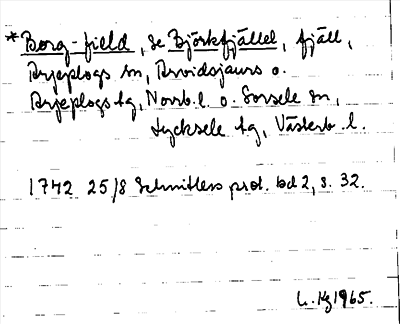 *Borg-field, se Björkfjället, fjäll,
Arjeplogs sn, Arvidsjaurs o.
Arjeplogs tg, Norrb. l. o. Sorsele sn,
Lycksele tg, Västerb. l.
1742 25/8 Schnitlers prot. bd 2, s. 32.
1965.